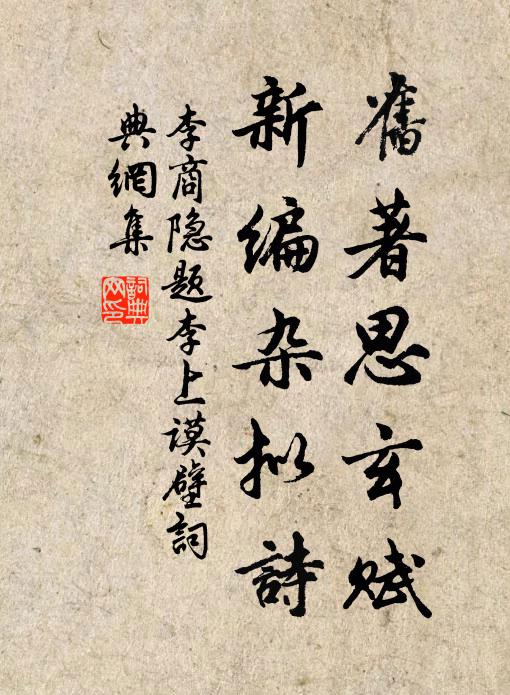 舊著思玄赋
新编杂拟詩
李商隐题李上谟壁詞
典網集
詞典網印